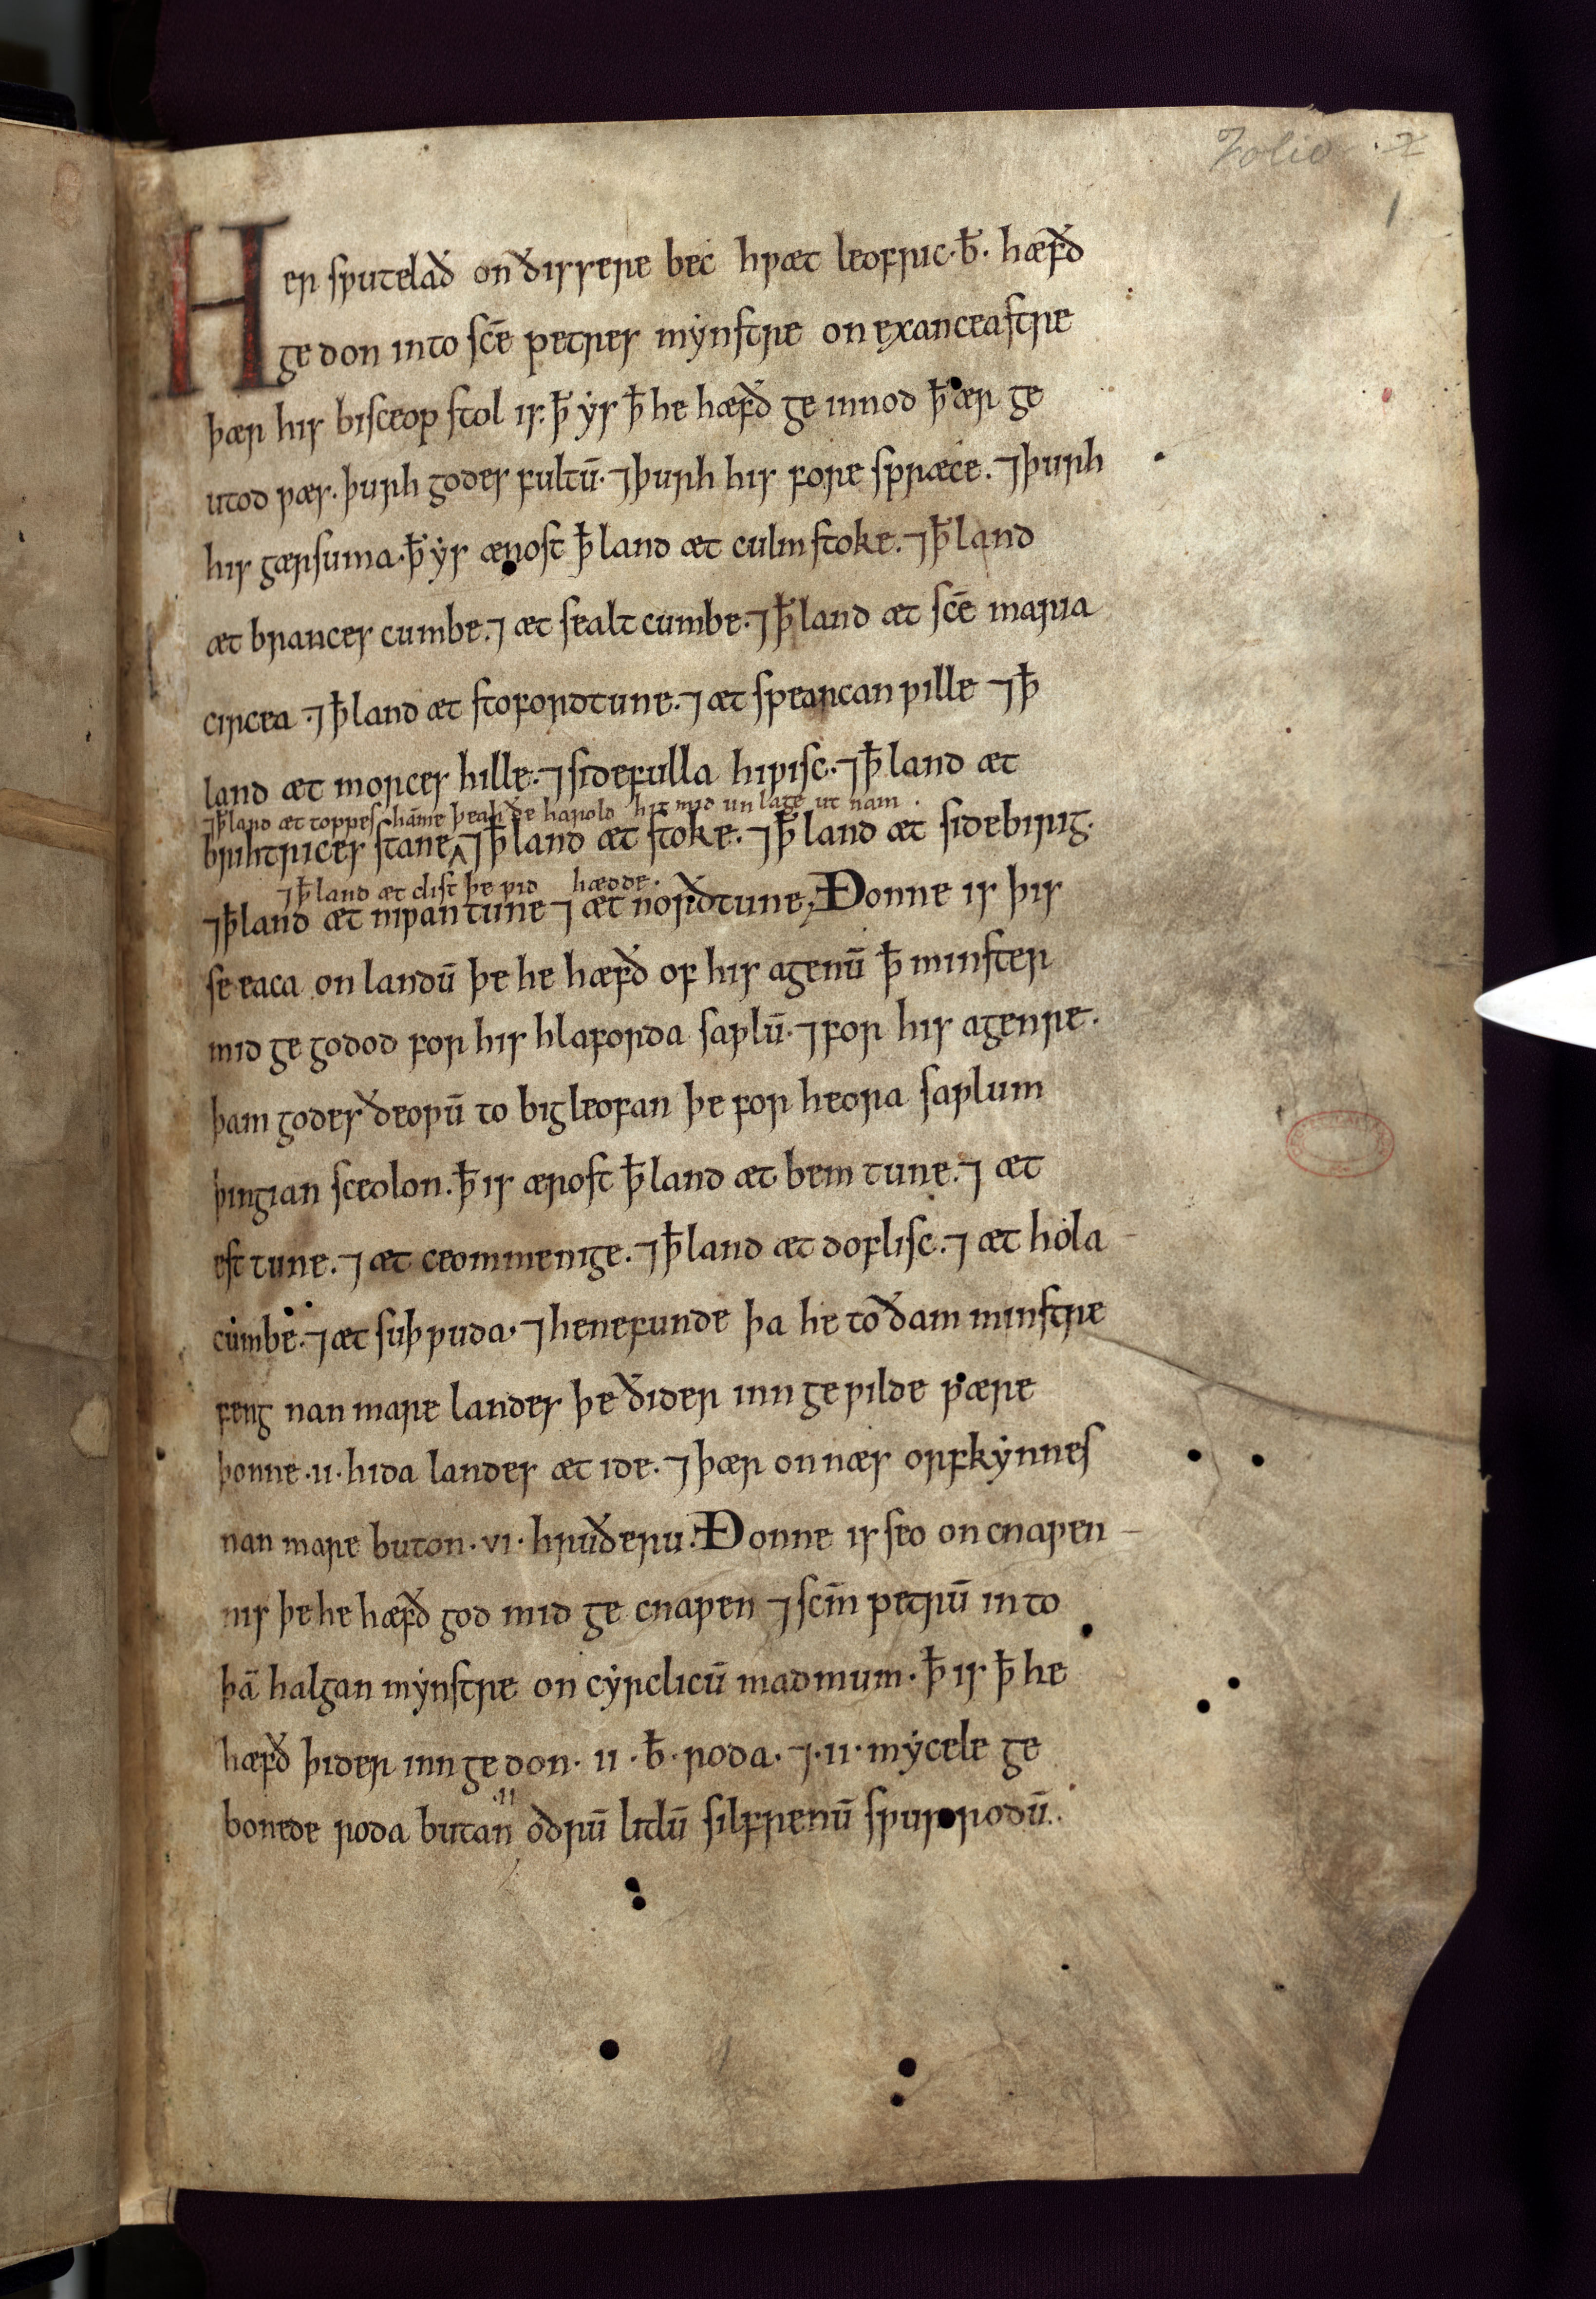 Folio ·x
1
Her sƿutelað on ðissere bec hƿæt leofric·b̄· hæfð
ge don into sc̄e petres mẏnstre on exanceastre
þær his bisceop stol is.ꝥ ẏs ꝥ he hæfð ge innod ꝥ ær ge
utod ƿæs. þurh godes fultū· ⁊þurh his fore spræce. ⁊þurh
his gærsuma.ꝥ ẏs ærost ꝥ land æt culmstoke. ⁊ꝥ land
æt brances cumbe.⁊ æt sealt cumbe.⁊ꝥ land æt sc̄e maria
circea ·⁊ꝥ land æt stofordtune.⁊ æt spearcan ƿille ⁊ꝥ
land æt morces hille.⁊ sidefulla hiƿisc.⁊ꝥ land æt
⁊ꝥ land æt toppeshāme þeah ðe harold hit mid un lage ut nam ·
brihtrices stane ⁊ꝥ land æt stoke. ⁊ꝥ land æt sidebirig·
⁊ꝥ land æt clist þe ƿid hædde·
⁊ꝥ land æt niƿantune ⁊ æt norðtune, Ðonne is þis
se eaca on landū þe he hæfð of his agenū ꝥ minster
mid ge godod for his hlaforda saƿlū·⁊for his agenre·
þam godes ðeoƿū to bigleofan þe for heora saƿlum
þingian sceolon.ꝥ is ærost ꝥ land æt bemtune.⁊ æt
est tune.⁊ æt ceommenige.⁊ꝥ land æt doflisc.⁊ æt hola
cumbe.⁊ æt suþ ƿuda·⁊ he ne funde þa he to ðam minstre
feng nan mare landes þe ðider inn ge ƿilde ƿære
þonne ·ii· hida landes æt ide.⁊ þær on næs orfkẏnnes
nan mare buton·vi· hruðeru. Ðonne is seo oncnaƿen
nis þe he hæfð god mid ge cnaƿen ⁊ sc̄m petrū in to
þā halgan mẏnstre on cẏrclicū madmum· ꝥ is ꝥ he
hæfð þider inn ge don· ii ·b̄·roda· ⁊·ii·mẏcele ge
bonede roda butan ·ii· oðrū litlū silfrenū sƿurrodū.